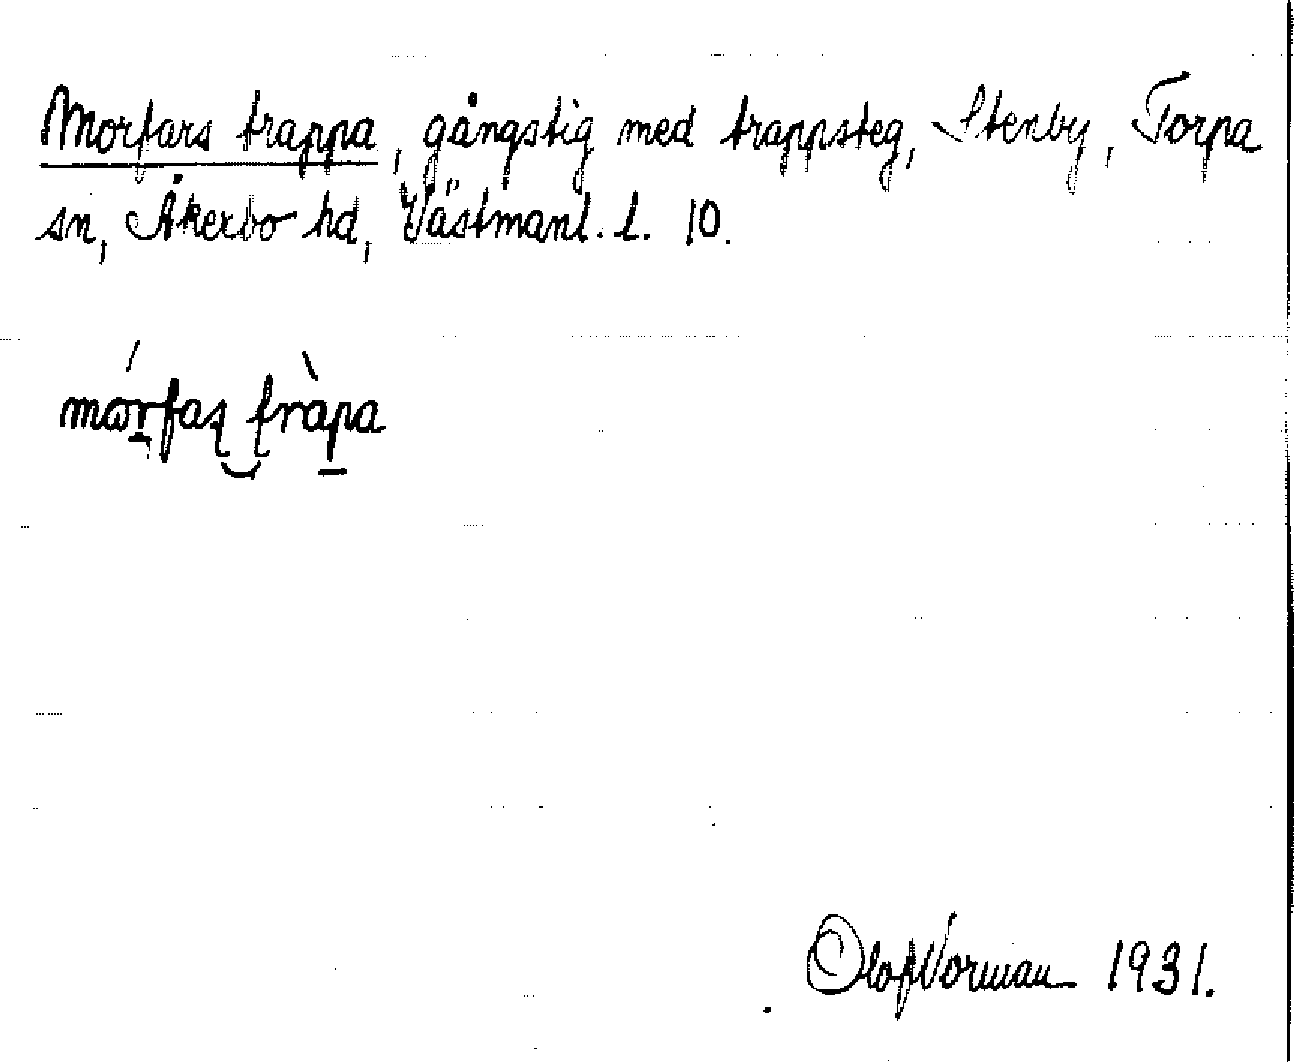 Morfars trappa, gångstig med trappsteg, Stenby, Torpa
sn, Åkerbo hd, Västmanl. l. 10.
mɷ́rfaʂ ʈràpa
Olof Norman 1931.